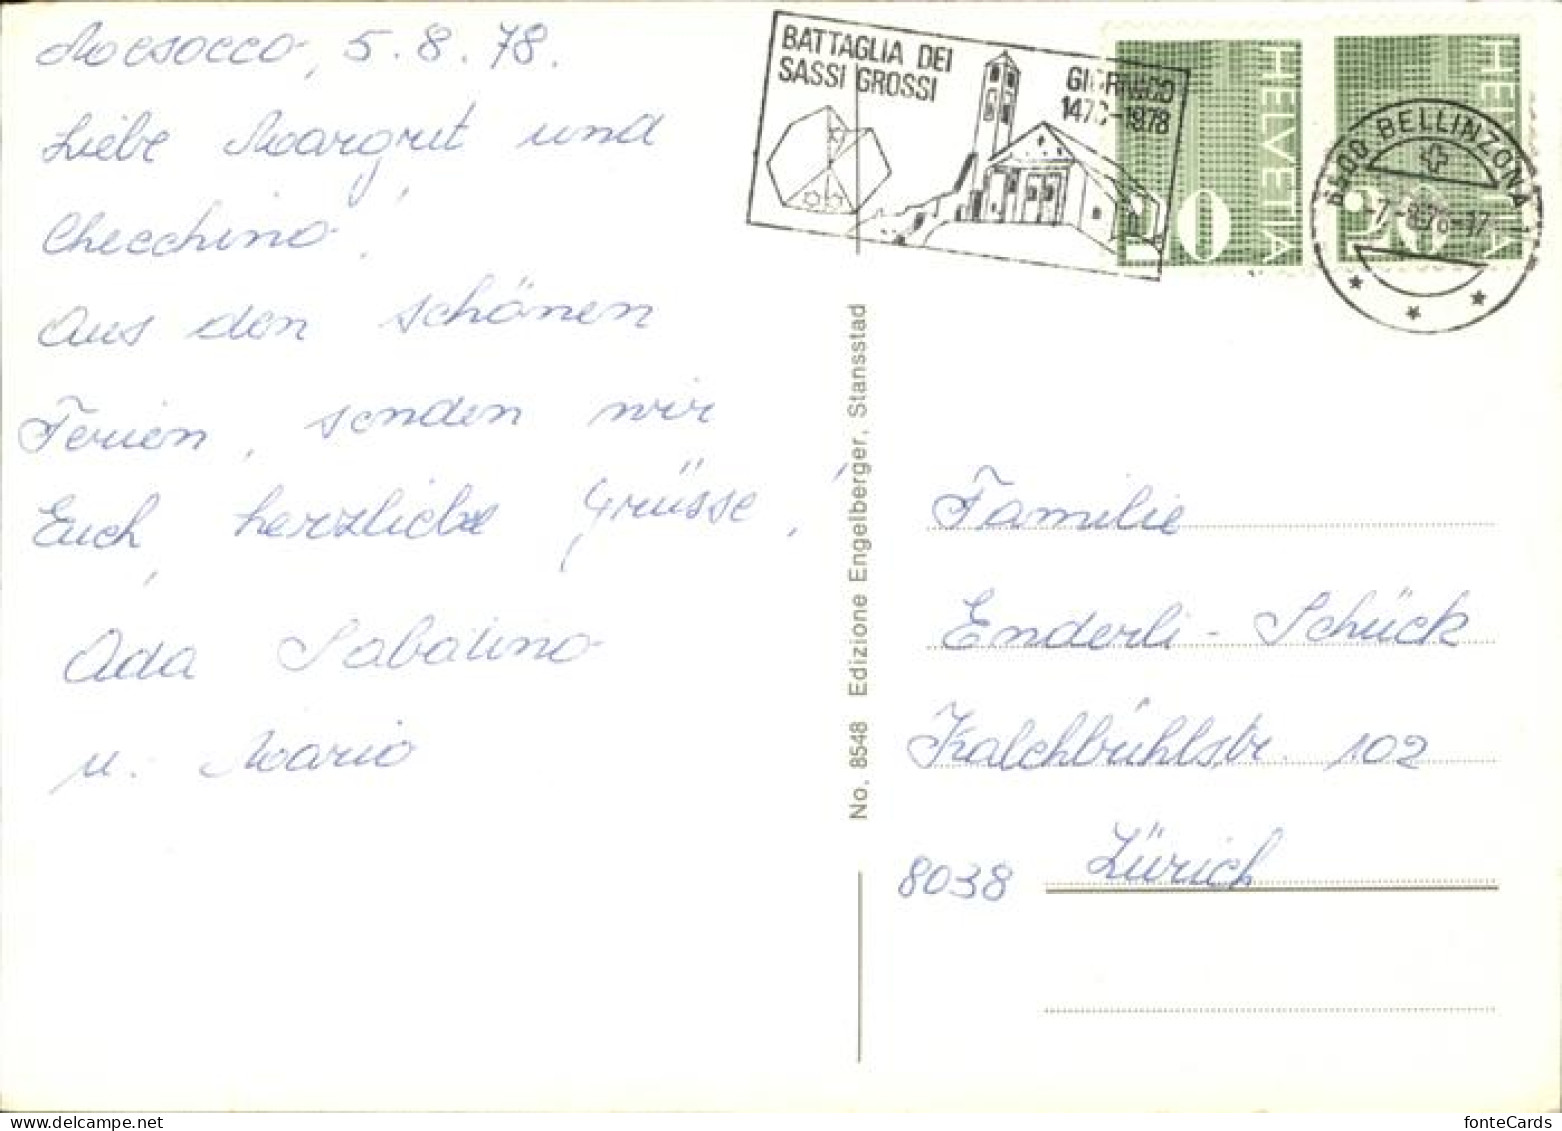 Mesocco, 5.8.78.
Liebe Margrit und
Checchino!
Aus den schönen
Ferien, senden wir
Euch, herzliche Grüsse,!
Ada Sabatino
u. Mario
BATTAGLIA DEI
SASSI GROSSI
GIORNICO
1478-1978
HELVETIA
HELVETIA
6500 BELLINZONA 1
-7.-8.78-17
No. 8548 Edizione Engelberger, Stansstad
Familie
Enderli - Schück
Kalchbühlstr. 102
8038 Zürich
fonteCards